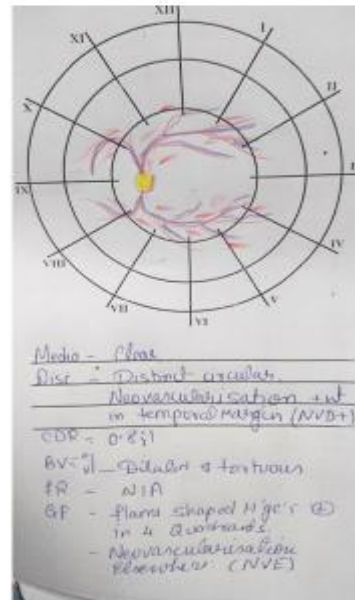 XII
I
II
IV
V
VI
VII
VIII
IX
X
XI
Media - Clear
Disc - Distinct circular.
Neovascularisation +nt
in temporal margin (NVD+)
CDR = 0.8:1
BV - Dilated & tortuous
FR - NIA
GF - flame shaped H'ge's ⊕
in 4 Quadrants
- Neovascularisation
Elsewhere (NVE)